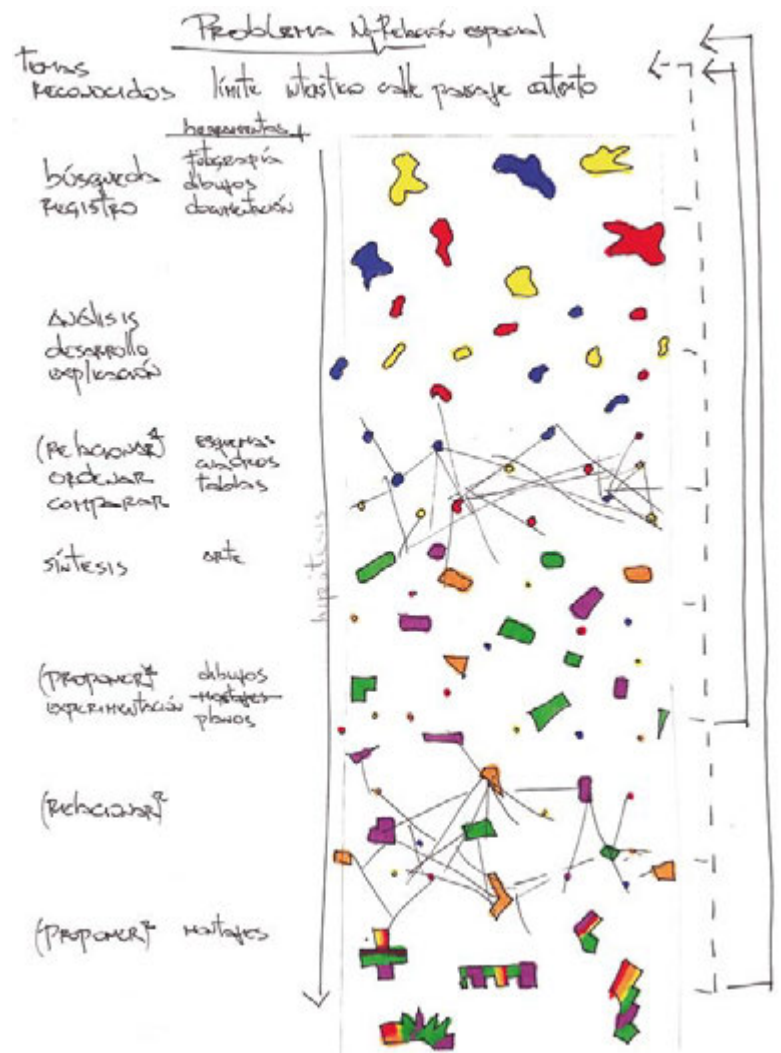 Problema No-Relación espacial
temas
RECONOCIDOS límite intersticio calle pasaje contexto
herramientas
búsqueda fotografía
REGISTRO dibujos
documentación
ANÁLISIS
desarrollo
explicación
(RELACIONAR) esquemas
ORDENAR cuadros
COMPARAR tablas
síntesis arte
hipótesis
(PROPONER) dibujos
EXPERIMENTACIÓN montajes
planos
(RELACIONAR)²
(PROPONER)² montajes